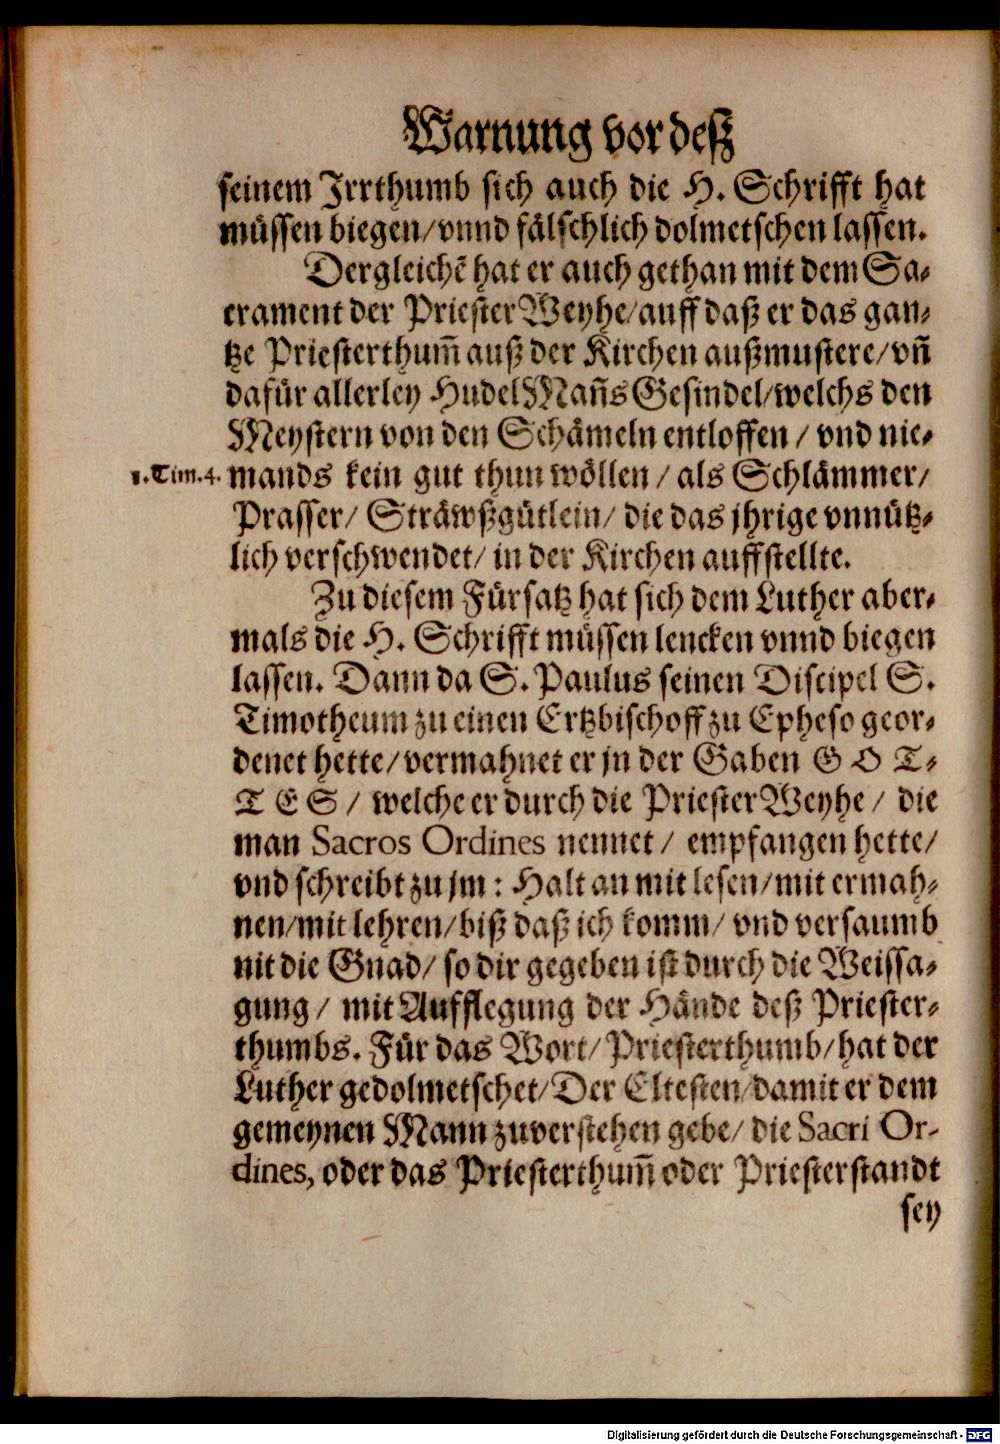 Warnung vor deß
seinem Irrthumb sich auch die H. Schrifft hat
müssen biegen/vnnd fälschlich dolmetschen lassen.
Dergleichẽ hat er auch gethan mit dem Sa-
crament der PriesterWeyhe/auff daß er das gan-
tze Priesterthum̃ auß der Kirchen außmustere/vñ
dafür allerley HudelMañs Gesindel/welchs den
Meystern von den Schämeln entloffen / vnd nie-
1.Tim.4. mands kein gut thun wöllen / als Schlämmer/
Prasser/ Sträwßgütlein/ die das jhrige vnnütz-
lich verschwendet/ in der Kirchen auffstellte.
Zu diesem Fürsatz hat sich dem Luther aber-
mals die H. Schrifft müssen lencken vnnd biegen
lassen. Dann da S. Paulus seinen Discipel S.
Timotheum zu einen Ertzbischoff zu Epheso geor-
denet hette/vermahnet er jn der Gaben G O T-
T E S / welche er durch die PriesterWeyhe / die
man Sacros Ordines nennet / empfangen hette/
vnd schreibt zu jm : Halt an mit lesen/mit ermah-
nen/mit lehren/biß daß ich komm/ vnd versaumb
nit die Gnad/ so dir gegeben ist durch die Weissa-
gung / mit Aufflegung der Hände deß Priester-
thumbs. Für das Wort/Priesterthumb/hat der
Luther gedolmetschet/Der Eltesten/damit er dem
gemeynen Mann zuverstehen gebe/ die Sacri Or-
dines, oder das Priesterthum̃ oder Priesterstandt
sey
Digitalisierung gefördert durch die Deutsche Forschungsgemeinschaft - DFG